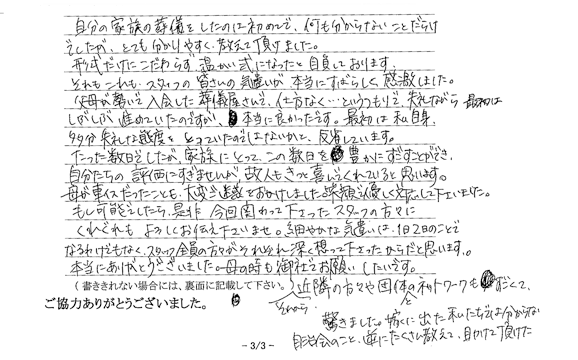 自分の家族の葬儀をしたのは初めてで、何も分からないことだらけ
でしたが、とても分かりやすく教えて頂けました。
形式だけにこだわらず、温かい式になったと自負しております。
それもこれも、スタッフの皆さんの気遣いが本当にすばらしく感激しました。
父母が勢いで入会した葬儀屋さんで、仕方なく…というつもりで、失礼ながら最初は
しぶしぶ進めていたのですが、本当に良かったです。最初は私自身、
多分失礼な態度をとっていたのではないかと、反省しています。
たった数日でしたが、家族にとって、この数日を豊かにすごすことができ、
自分たちの評価にすぎませんが、故人もきっと喜んでくれていると思います。
母が車イスだったことも、大変ご迷惑をおかけしました。笑顔で優しく対応して下さいました。
もし可能でしたら、是非今回関わって下さったスタッフの方々に
くれぐれもよろしくお伝え下さいませ。細やかな気遣いは、1日2日のことで
なるわけでもなく、スタッフ全員の方々がそれぞれ深く想って下さったからだと思います。
本当にありがとうございました。母の時も御社でお願いしたいです。
(書ききれない場合には、裏面に記載して下さい。)
ご協力ありがとうございました。
それから 近隣の方々や団体のネットワークもすごくて、
と
驚きました。嫁に出た私たちでは分からない
自治会のこと、逆にたくさん教えて、助けて頂けた
- 3/3 -